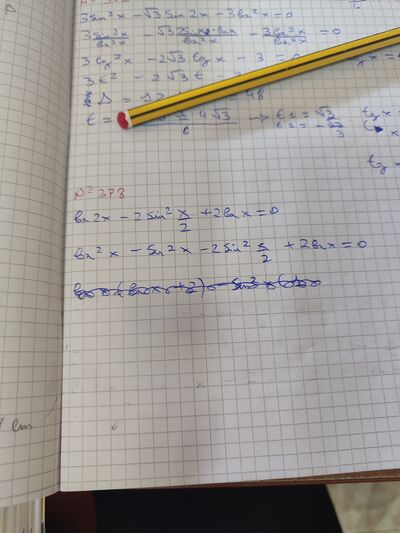 3 sin²x - √3 sin 2x - 3 cos²x = 0
3 sin²x/cos²x - √3 2 sin x · cos x/cos²x - 3 cos²x/cos²x = 0
3 tg²x - 2√3 tg x - 3 = 0
3t² - 2√3 t -
Δ = 12 48
t = 4√3 / 6 → t1 = √3 tg x
t2 = -√3/3
tg x
N° 378
cos 2x - 2 sin² x/2 + 2 cos x = 0
cos²x - sin²x - 2 sin² x/2 + 2 cos x = 0